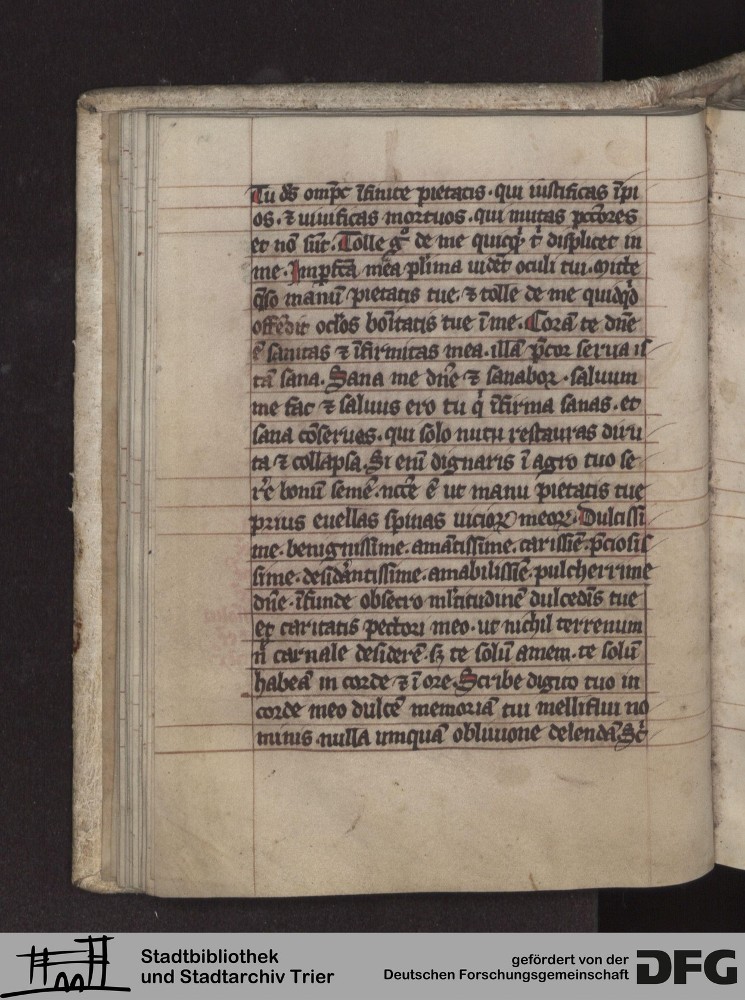 Tu ds̄ omp̄c īfinite pietatis. qui iustificas īpi
os. ⁊ uiuificas mortuos. qui mutas pctōres
et nō sūt. Tolle gͦ de me quicqͥ t̄ displicet in
me. Imꝑfcā mēa plīma uidēt oculi tui. Mitte
q̄so manū pietatis tue. ⁊ tolle de me quidqͥd
offēdit oclōs boītatis tue ī me. Corā te dn̄e
ē sanitas ⁊ īfirmitas mea. illā p̄cor serua is
tā sana. Sana me dn̄e ⁊ sanabor. saluum
me fac ⁊ saluus ero tu qͥ īfirma sanas. et
sana cōserues. qui solo nutu restauras diru
ta ⁊ collapsa. Si enī dignaris ī agro tuo se
re᷑ bonū semē. nctē ē ut manu pietatis tue
prius euellas spinas uicioꝝ meoꝝ. Dulcissi
me. benignissime. amātissime. carissīe. p̄ciosis
sime. desidāntissime. amabilissīe. pulcherrime
dn̄e. īfunde obsecro ml̄titudinē dulcedīs tue
et caritatis pectori meo. ut nichil terrenum
n̄ carnale desiderē. sꝫ te solū amem. te solū
habeā in corde ⁊ ī ore. Scribe digito tuo in
corde meo dulcē memoriā tui melliflui no
minis nulla umquā obliuione delendā. Sc̄
Stadtbibliothek
und Stadtarchiv Trier
gefördert von der
Deutschen Forschungsgemeinschaft
DFG